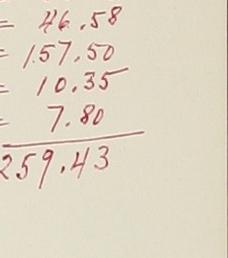 = 46.58
= 157.50
= 10.35
= 7.80
259.43